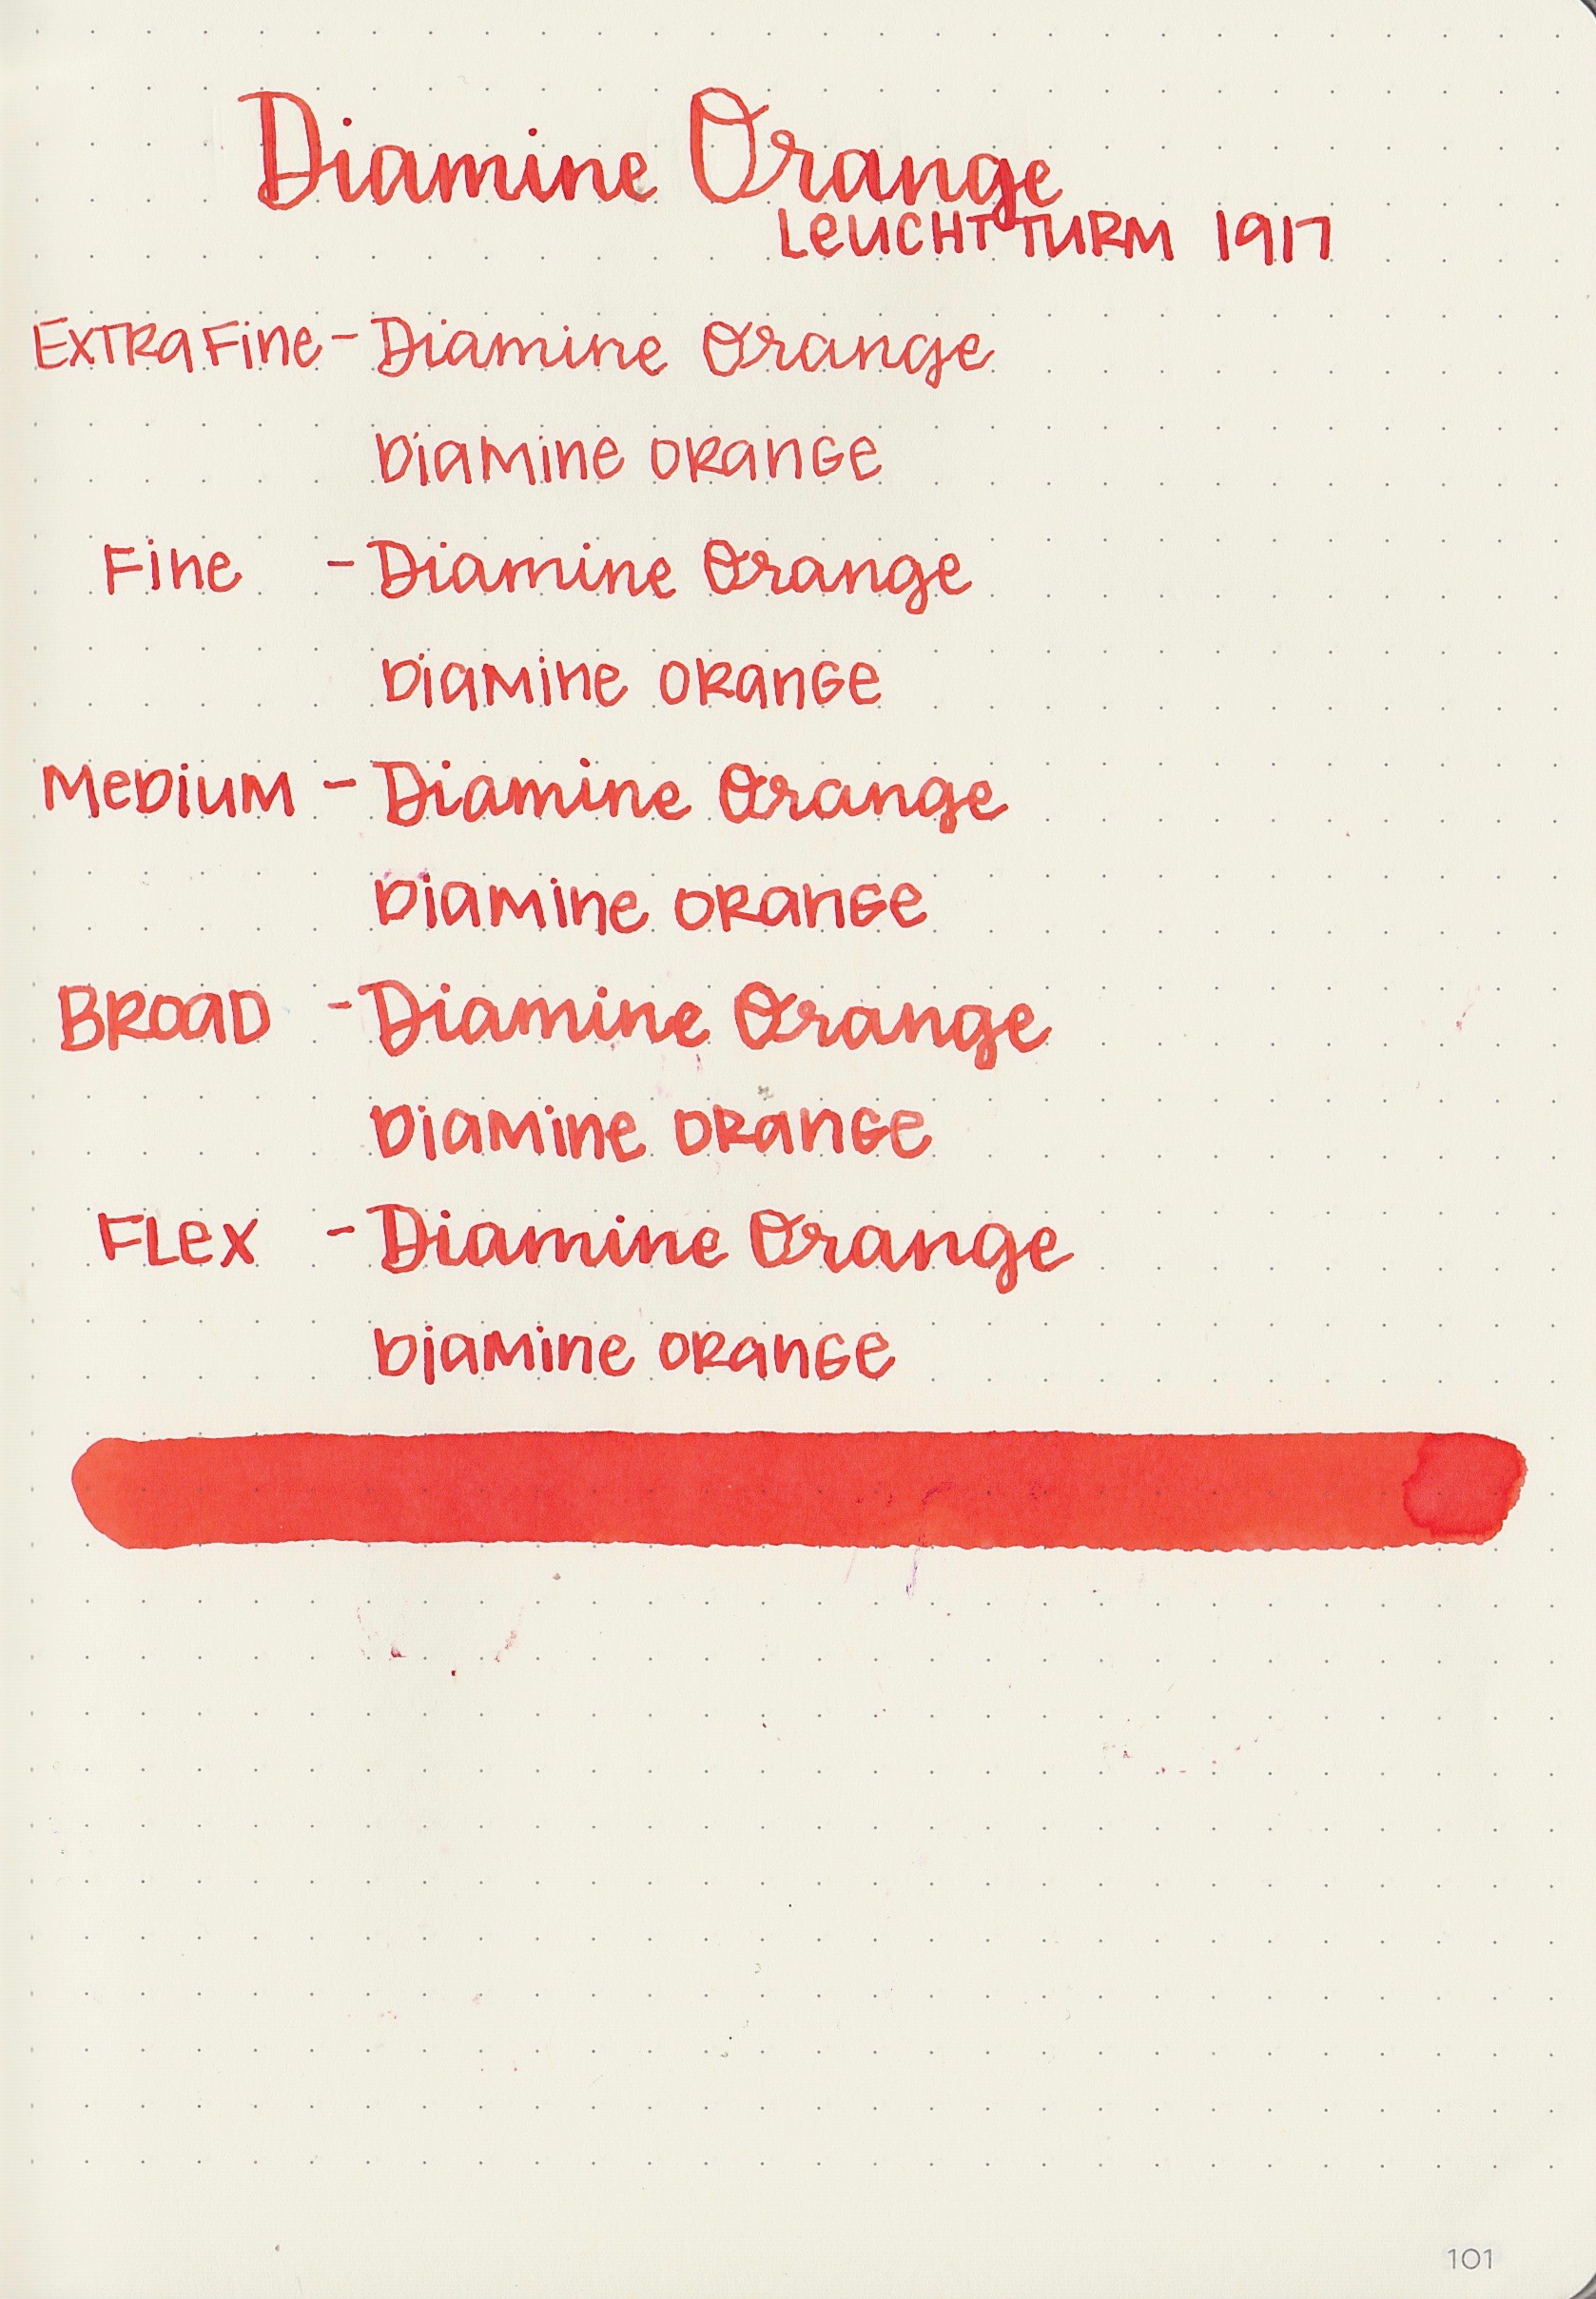 Diamine Orange
LEUCHTTURM 1917
EXTRA FINE - Diamine Orange
DIAMINE ORANGE
FINE - Diamine Orange
DIAMINE ORANGE
MEDIUM - Diamine Orange
DIAMINE ORANGE
BROAD - Diamine Orange
DIAMINE ORANGE
FLEX - Diamine Orange
DIAMINE ORANGE
101